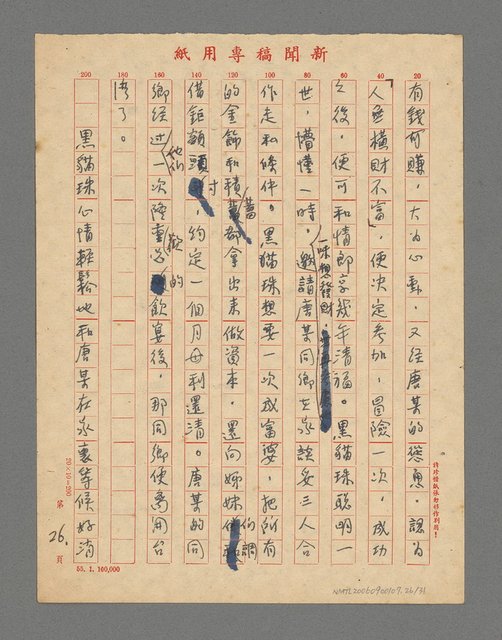 新聞稿專用紙
有錢可賺，大為心動，又經唐某的慫恿，認為
「人無橫財不富，便決定參加，冒險一次，成功
之後，便可和情郎享幾年清福。黑貓珠聰明一
世，懵懂一時，一味想發財，邀請唐某同鄉在家談妥三人合
作走私條件。黑貓珠想要一次成富婆，把所有
的金飾和積蓄都拿出來做資本，還向姊妹們調
借鉅額頭寸，約定一個月毋利還清。唐某的同
鄉經過他們一次隆重的歡飲宴後，那同鄉便離開台
灣了。
黑貓珠心情輕鬆地和唐某在家裏等候好消
20
40
60
80
100
120
140
160
180
200
請珍惜紙張勿移作別用！
20×10=200
第26.頁
55.1.100,000
NMTL20060900107.26/31